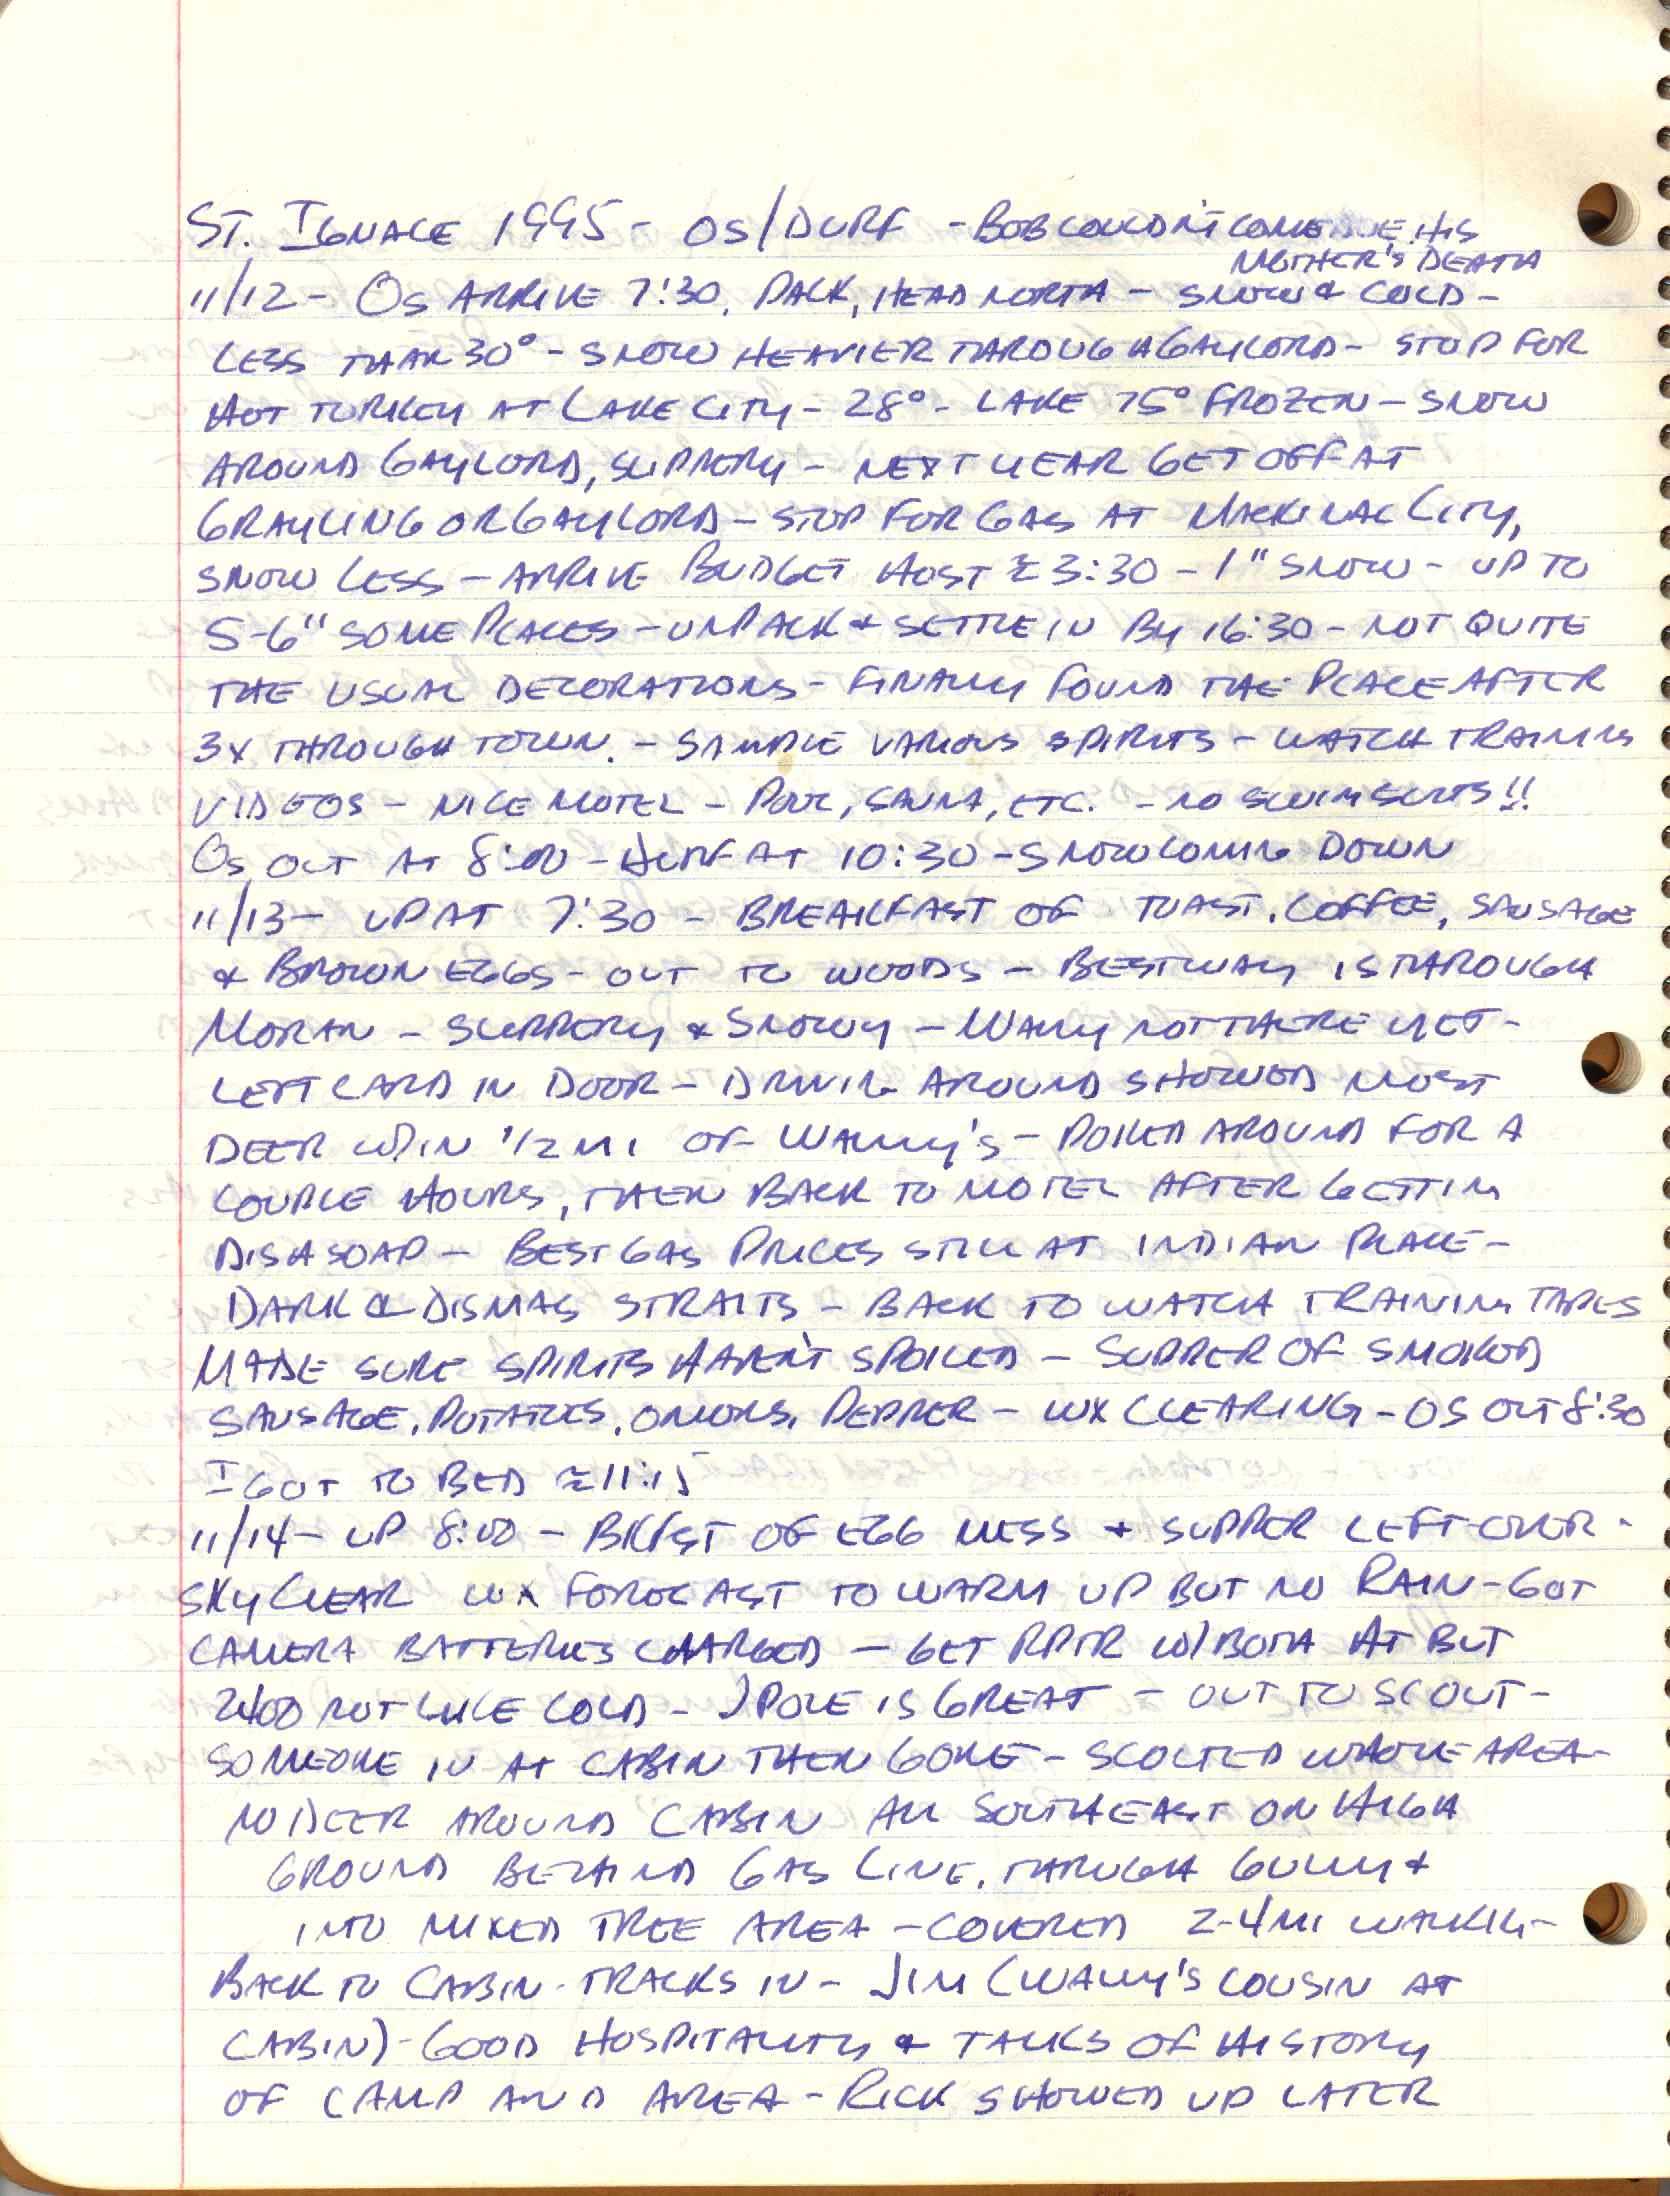 ST. IGNACE 1995 - OS/DURF - BOB COULDN'T COME DUE HIS
MOTHER'S DEATH
11/12 - OS ARRIVE 7:30, PACK, HEAD NORTH - SNOW & COLD -
LESS THAN 30° - SNOW HEAVIER THROUGH GAYLORD - STOP FOR
HOT TURKEY AT LAKE CITY - 28° - LAKE 75° FROZEN - SNOW
AROUND GAYLORD, SLIPPERY - NEXT YEAR GET OFF AT
GRAYLING OR GAYLORD - STOP FOR GAS AT MACKINAC CITY,
SNOW LESS - ARRIVE BUDGET HOST ≈ 3:30 - 1" SNOW - UP TO
5-6" SOME PLACES - UNPACK & SETTLE IN BY 16:30 - NOT QUITE
THE USUAL DECORATIONS - FINALLY FOUND THE PLACE AFTER
3X THROUGH TOWN. - SAMPLE VARIOUS SPIRITS - WATCH TRAINING
VIDEOS - NICE MOTEL - POOL, SAUNA, ETC. - NO SWIMSUITS!!
OS OUT AT 8:00 - DURF AT 10:30 - SNOW COMING DOWN
11/13 - UP AT 7:30 - BREAKFAST OF TOAST, COFFEE, SAUSAGE
& BROWN EGGS - OUT TO WOODS - BEST WAY IS THROUGH
MORAN - SLIPPERY & SNOWY - WALLY NOT THERE YET -
LEFT CARD IN DOOR - DRIVING AROUND SHOWED MOST
DEER W/IN 1/2 MI OF WALLY'S - POKED AROUND FOR A
COUPLE HOURS, THEN BACK TO MOTEL AFTER GETTING
DISH SOAP - BEST GAS PRICES STILL AT INDIAN PLACE -
DARK & DISMAL STRAITS - BACK TO WATCH TRAINING TAPES
MADE SURE SPIRITS HAVEN'T SPOILED - SUPPER OF SMOKED
SAUSAGE, POTATOES, ONIONS, PEPPER - WX CLEARING - OS OUT 8:30
I GOT TO BED ≈ 11:15
11/14 - UP 8:00 - BRKFST OF EGG MESS & SUPPER LEFT-OVER -
SKY CLEAR WX FORECAST TO WARM UP BUT NO RAIN - GOT
CAMERA BATTERIES CHARGED - GET RPTR W/BOTH HT BUT
2400 NOT LIKE COLD - J POLE IS GREAT - OUT TO SCOUT -
SOMEONE IN AT CABIN THEN GONE - SCOUTED WHOLE AREA -
NO DEER AROUND CABIN ALL SOUTHEAST ON HIGH
GROUND BEHIND GAS LINE, THROUGH GULLY &
INTO MIXED TREE AREA - COVERED 2-4 MI WALKING -
BACK TO CABIN - TRACKS IN - JIM (WALLY'S COUSIN AT
CABIN) - GOOD HOSPITALITY & TALKS OF HISTORY
OF CAMP AND AREA - RICK SHOWED UP LATER